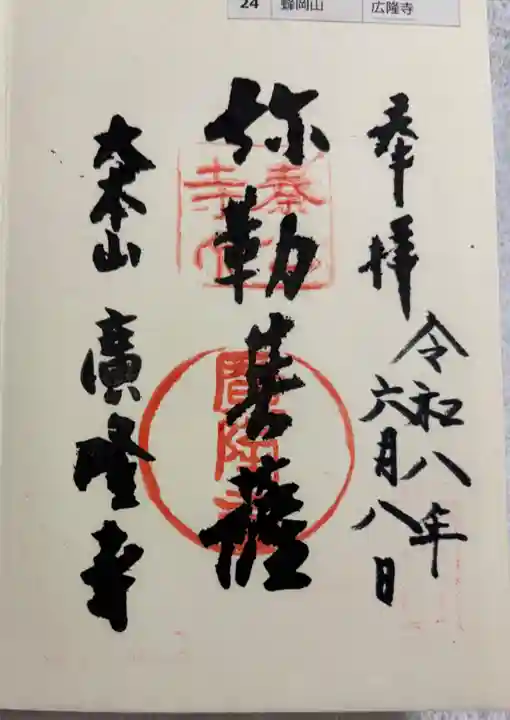 24 蜂岡山 広隆寺
奉拝
令和八年
六月八日
弥勒菩薩
大本山 廣隆寺
廣隆寺